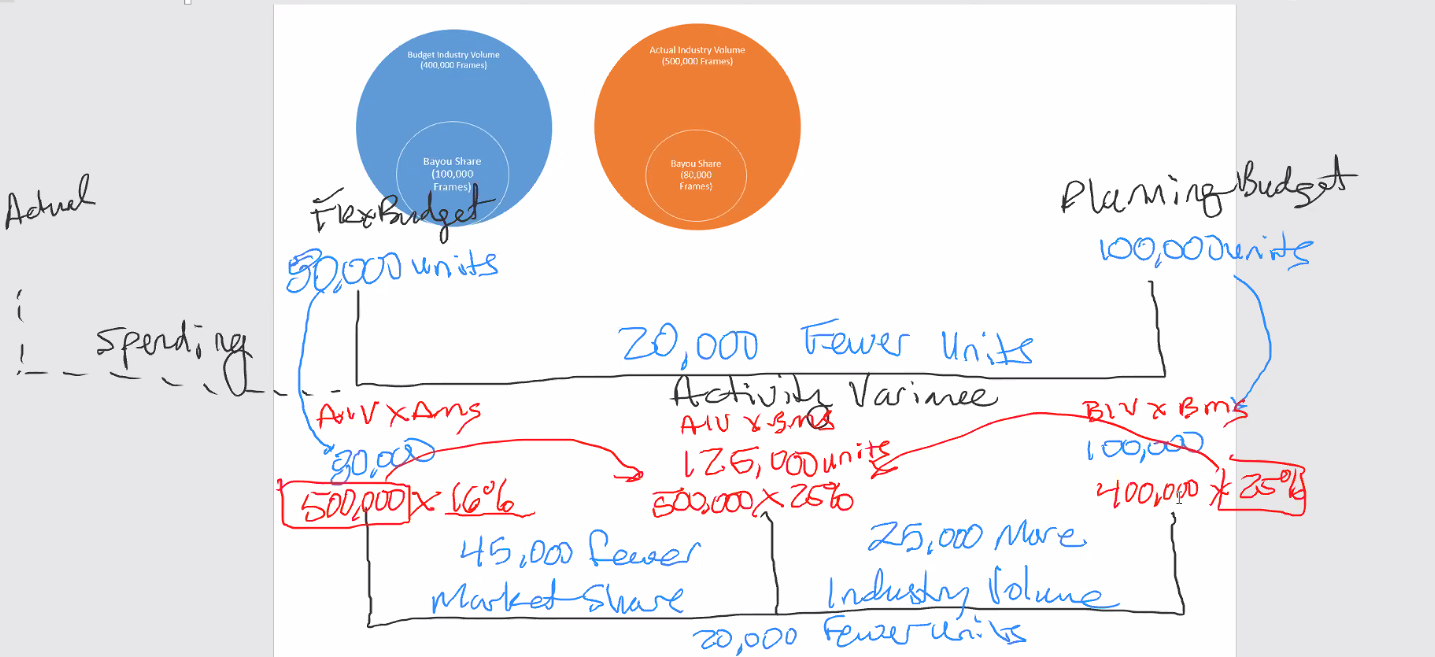 Budget Industry Volume
(400,000 Frames)
Bayou Share
(100,000
Frames)
Actual Industry Volume
(500,000 Frames)
Bayou Share
(80,000
Frames)
Actual
Flex Budget
Planning Budget
80,000 units
100,000 units
Spending
20,000 Fewer Units
Activity Variance
AIV x Ams
AIV x Bms
BIV x Bms
80,000
125,000 units
100,000
500,000 x 16%
500,000 x 25%
400,000 x 25%
45,000 fewer
Market Share
25,000 More
Industry Volume
20,000 Fewer Units